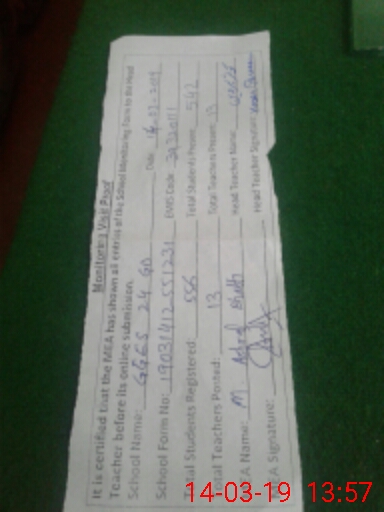 Monitoring Visit Proof
It is certified that the MEA has shown all entries of the School Monitoring Form to the Head
Teacher before its online submission.
School Name: GGES 24 GD Date 14-03-2019
School Form No: 19031412551231 EMIS Code
Total Students Registered: 556 Total Students Present: 542
Total Teachers Posted: 13 Total Teachers Present: 13
MEA Name: M. Head Teacher Name:
MEA Signature: Head Teacher Signature
14-03-19 13:57